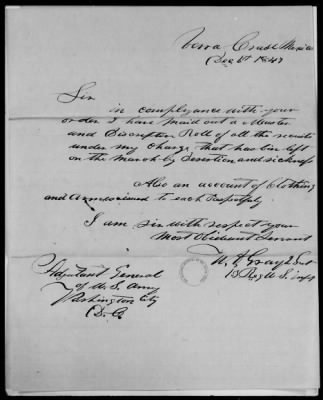 Vera Cruse Mexico
Dec 6t 1847
Sir
in complyance with your
order I have maid out a Muster
and Discription Roll of all the recruits
under my Charge that has bin left
on the march by Desertion and sickness
Also an account of Clothing
and Arms issued to each Respetfuly
I am sir with respect your
Most Obediant Servant
W. H. Gray 2 Lut
13 Reg U S. infy
Adjutant General
of U. S. Army
Washington City
D. C.